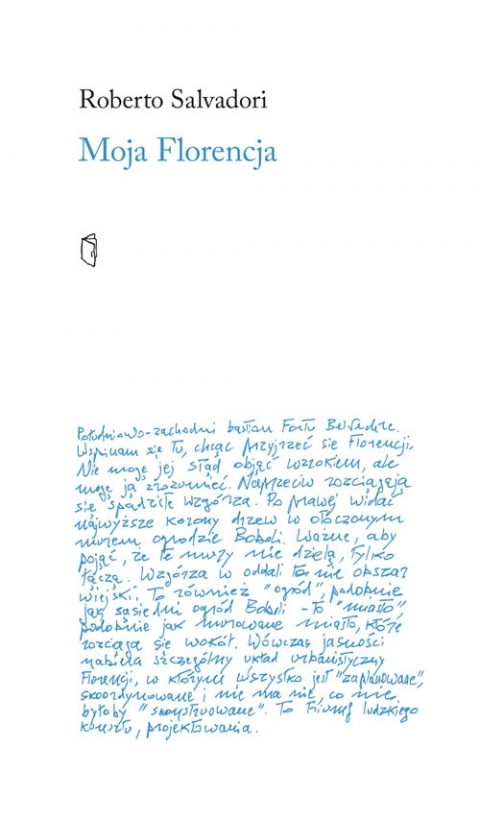 Roberto Salvadori
Moja Florencja
Południowo-zachodni bastion Fortu Belvedere.
Wspinam się tu, chcąc przyjrzeć się Florencji.
Nie mogę jej stąd objąć wzrokiem, ale
mogę ją zrozumieć. Naprzeciw rozciągają
się spadziste wzgórza. Po prawej widać
najwyższe korony drzew w otoczonym
murem ogrodzie Boboli. Ważne, aby
pojąć, że te mury nie dzielą, tylko
łączą. Wzgórza w oddali to nie obszar
wiejski. To również "ogród", podobnie
jak sąsiedni ogród Boboli - to "miasto",
podobnie jak murowane miasto, które
rozciąga się wokół. Wówczas jasności
nabiera szczególny układ urbanistyczny
Florencji, w którym wszystko jest "zaplanowane",
skoordynowane i nie ma nic, co nie
byłoby "skonstruowane". To triumf ludzkiego
kunsztu, projektowania.